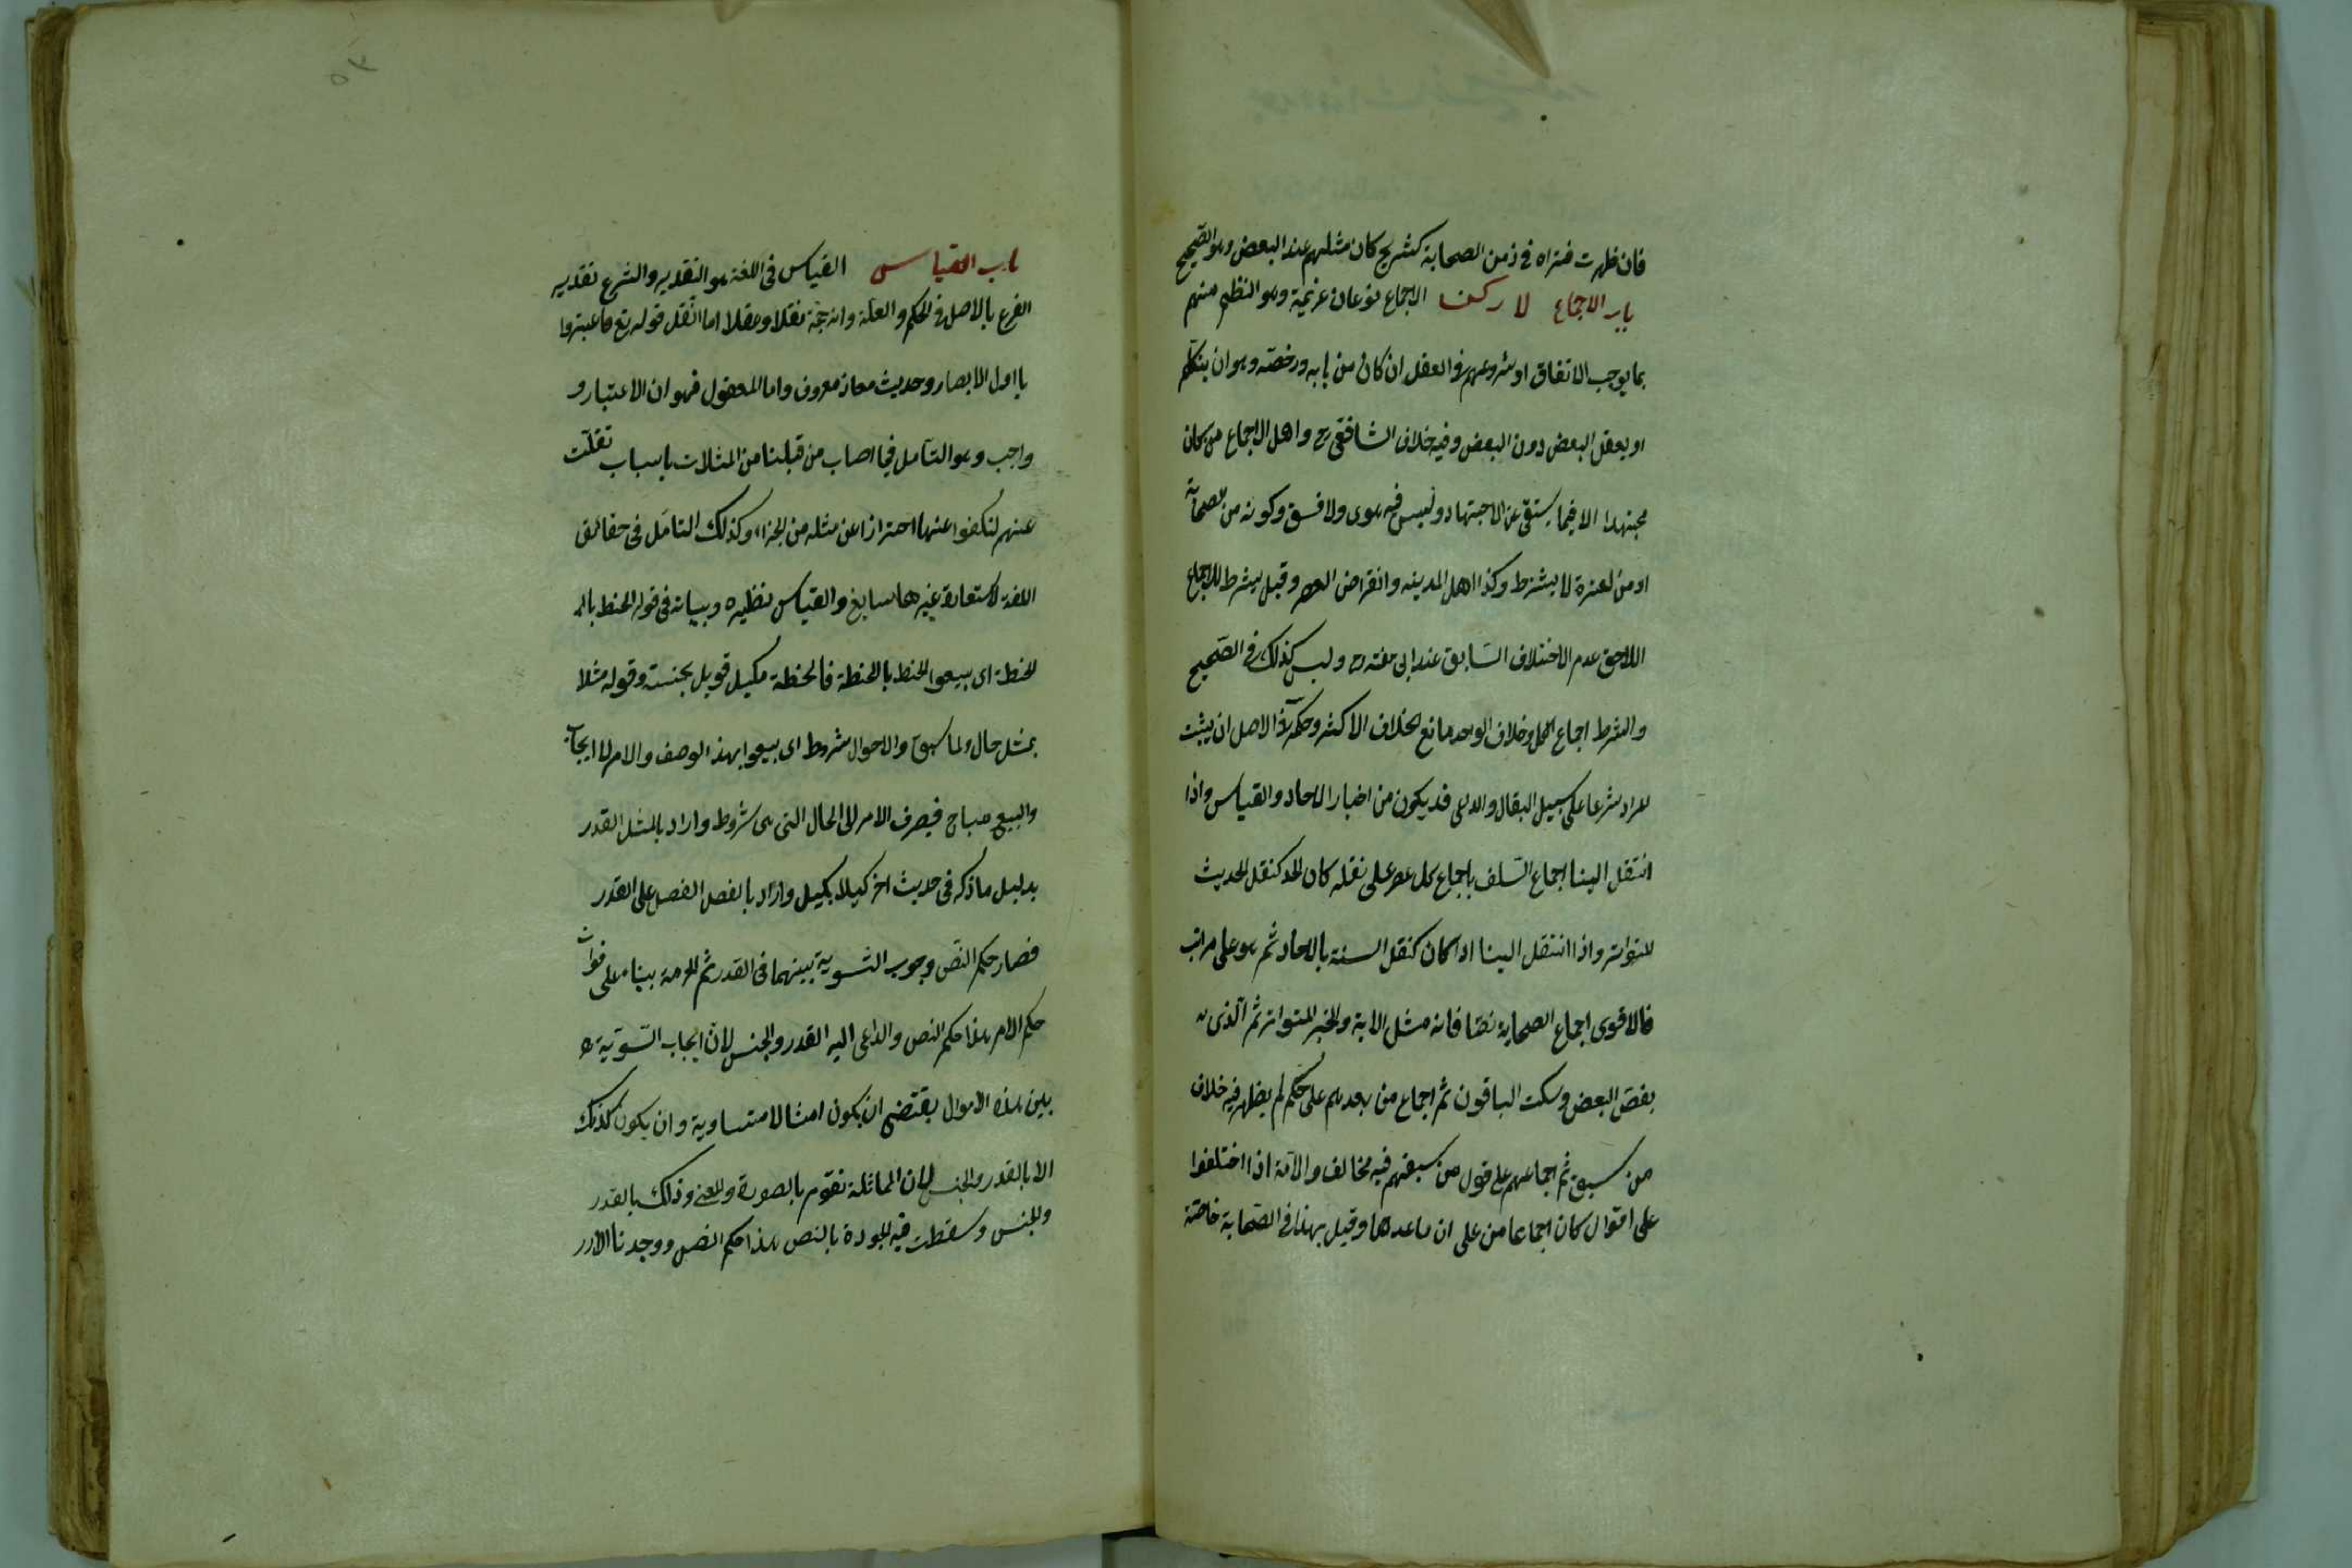 فان ظهرت فتراه في زمن الصحابة كشريح كان مثلهم عند البعض وهو الصحيح
باب الاجماع لا ركن الاجماع نوعان عزيمة وهو التظم منهم
بما يوجب الاتفاق او شروعهم في الفعل ان كان من بابه ورخصة وهو ان يتكلم
او يفعل البعض دون البعض وفيه خلاف الشافعي رح واهل الاجماع من كان
مجتهدا الا فيما يستغنى عن الاجتهاد وليس فيه هوى ولا فسق وكونه من الصحابة
او من العترة لا يشترط وكذا اهل المدينه وانقراض العصر وقيل يشرط للاجماع
اللاحق عدم الاختلاف السابق عند ابى حنفة رح وليس كذلك في الصحيح
والشرط اجماع الكل وخلاف الواحد مانع كخلاف الاكثر وحكمه في الاصل ان يثبت
المراد شرعا على سبيل اليقال والداعى قد يكون من اخبار الاحاد والقياس واذا
انتقل الينا اجماع السلف باجماع كل عصر على نقله كان كنقل الحديث
المتواتر واذا انتقل الينا اداكان كنقل السنة بالاحاد ثم هو على مراتب
فالاقوى اجماع الصحابة نصا فانه مثل الاية والخبر المتواتر ثم الذى
بغض البعض وسكت الباقون ثم اجماع من بعدهم على حكم لم يظهر فيه خلاف
من سبق ثم اجماعهم على قول من سبقهم فيه مخالف والامة اذا اختلفوا
على اقوال كان اجماعا من على ان ماعدها وقيل بهذا في الصحابة خاصة
باب القياس القياس فى اللغة هو التقدير والشرع تقدير
الفرع بالاصل في الحكم والعلة وانه حجة نقلا وعقلا اما النقل قوله تع فاعتبروا
يا اولى الابصار وحديث معاذ معروف واما المعقول فهو ان الاعتبار و
واجب وهو التامل فيما اصاب من قبلنا من المثلات باسباب نقلت
عنهم لنكفوا عنها احترازا عن مثله من الجزاء وكذلك التامل فى حقائق
اللغة لاستعارة غيرها سايغ والقياس نظيره وبيانه فى قوله الحنط بال
الحنطة اى بيعوا الحنط بالحنطة فالحنطة مكيل قوبل بجنسه وقوله مثلا
بمثل حال لما سبق والاحوال شروط اى بيعوا بهذ الوصف والامر لاايجاب
والبيع مباح فيصرف الامر الى الحال التى هى شروط واراد بالمثل القدر
بدليل ما ذكره فى حديث اخر كيلا بكيل واراد بالفصل الفصل على القدر
فصار حكم النص وجوب التسوية بينهما فى القدر ثم الحرمة بناء على فوات
حكم الامر هذا حكم النص والداعى اليه القدر والجنس لان ايجاب التسوية
بين هذه الاموال يقتضى ان يكون امثالا متساوية وان يكون كذلك
الا بالقدر والجنس لان المماثلة تقوم بالصورة والمعنى وذلك بالقدر
والجنس وسقطت قيمة الجودة بالنص هذا حكم النص ووجدنا الارر